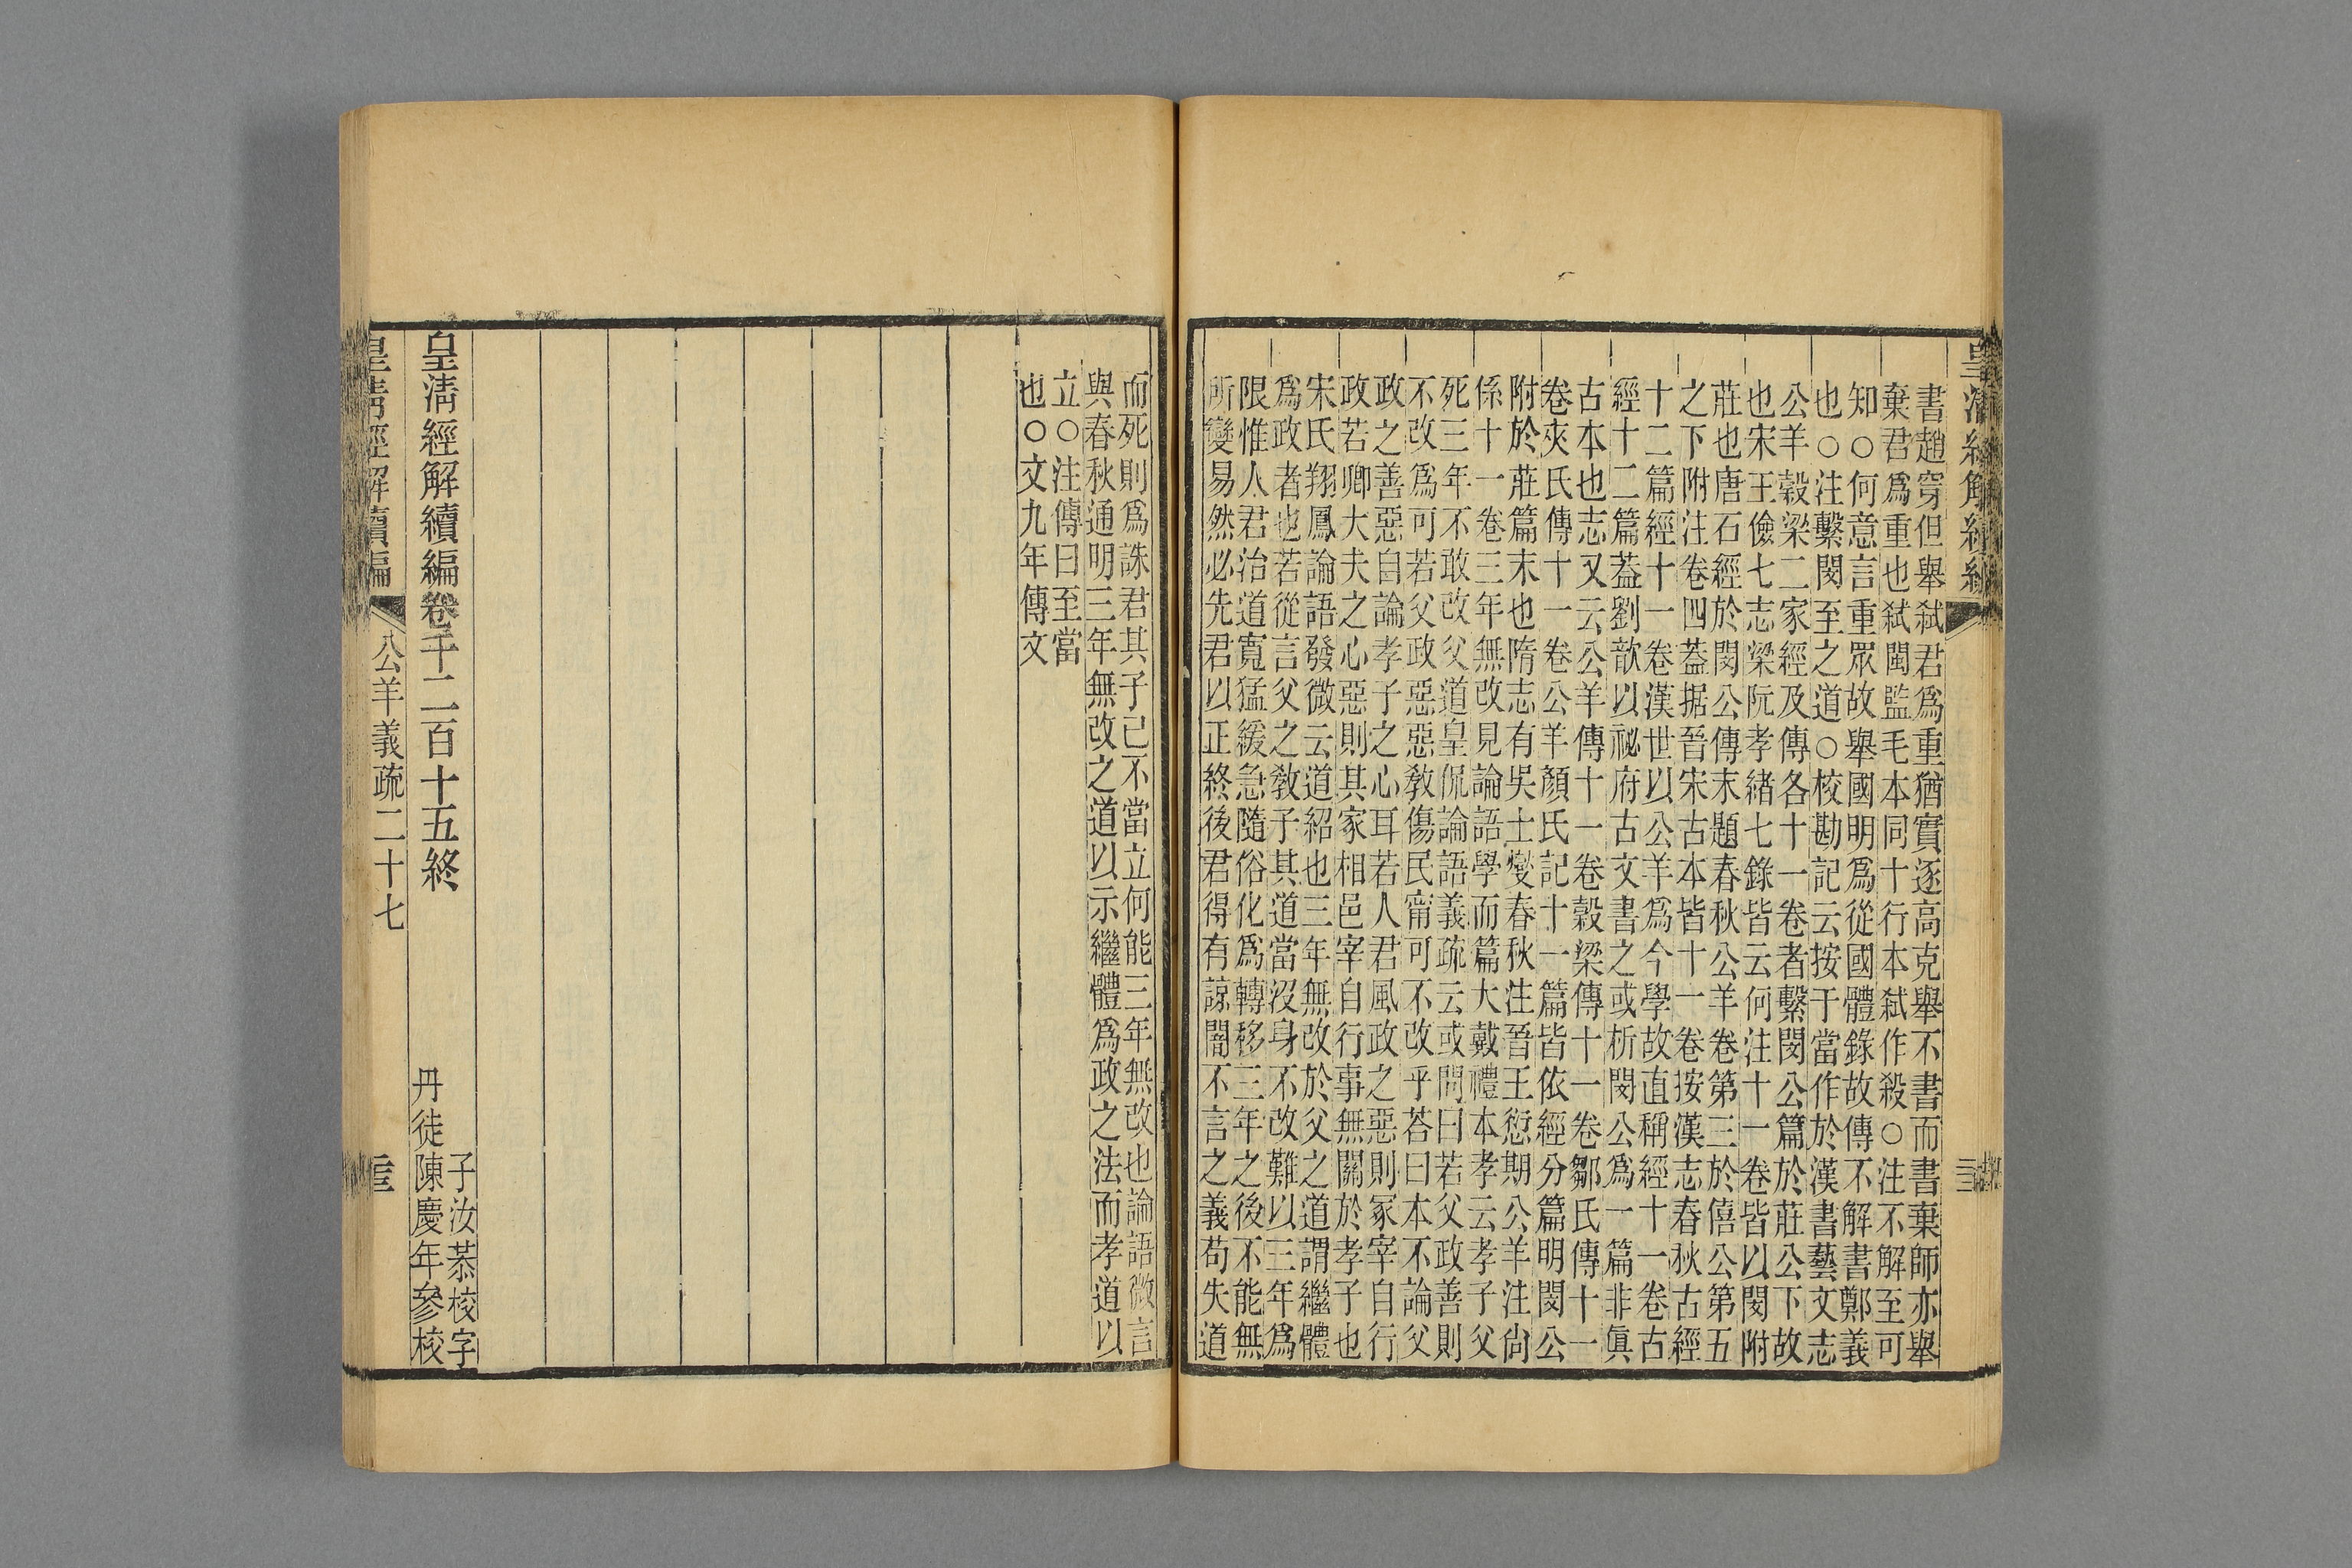 書趙穿但舉弑君爲重猶實逐高克舉不書而書棄師亦舉
棄君爲重也弑閩監毛本同十行本弑作殺○注不解至可
知○何意言重眾故舉國明爲從國體錄故傳不解書鄭義
也○注繫閔至之道○校勘記云按于當作於漢書藝文志
公羊穀梁二家經及傳各十一卷者繫閔公篇於莊公下故
也宋王儉七志梁阮孝緒七錄皆云何注十一卷皆以閔附
莊也唐石經於閔公傳末題春秋公羊卷第三於僖公第五
之下附注卷四葢据晉宋古本皆十一卷按漢志春秋古經
十二篇經十一卷漢世以公羊爲今學故直稱經十一卷古
經十二篇葢劉歆以祕府古文書之或析閔公爲一篇非眞
古本也志又云公羊傳十一卷穀梁傳十一卷鄒氏傳十一
卷夾氏傳十一卷公羊顏氏記十一篇皆依經分篇明閔公
附於莊篇末也隋志有吳士燮春秋注晉王愆期公羊注尙
係十一卷三年無改見論語學而篇大戴禮本孝云孝子父
死三年不敢改父道皇侃論語義疏云或問曰若父政善則
不改爲可若父政惡惡敎傷民甯可不改乎荅曰本不論父
政之善惡自論孝子之心耳若人君風政之惡則冢宰自行
政若卿大夫之心惡則其家相邑宰自行事無關於孝子也
宋氏翔鳳論語發微云道紹也三年無改於父之道謂繼體
爲政者也若從言父之敎子其道當沒身不改難以三年爲
限惟人君治道寬猛緩急隨俗化爲轉移三年之後不能無
所變易然必先君以正終後君得有諒闇不言之義苟失道
而死則爲誅君其子已不當立何能三年無改也論語微言
與春秋通明三年無改之道以示繼體爲政之法而孝道以
立○注傳曰至當
也○文九年傳文
皇清經解續編卷千二百十五終
子汝恭校字
丹徒陳慶年參校
皇清經解續編
公羊義疏二十七